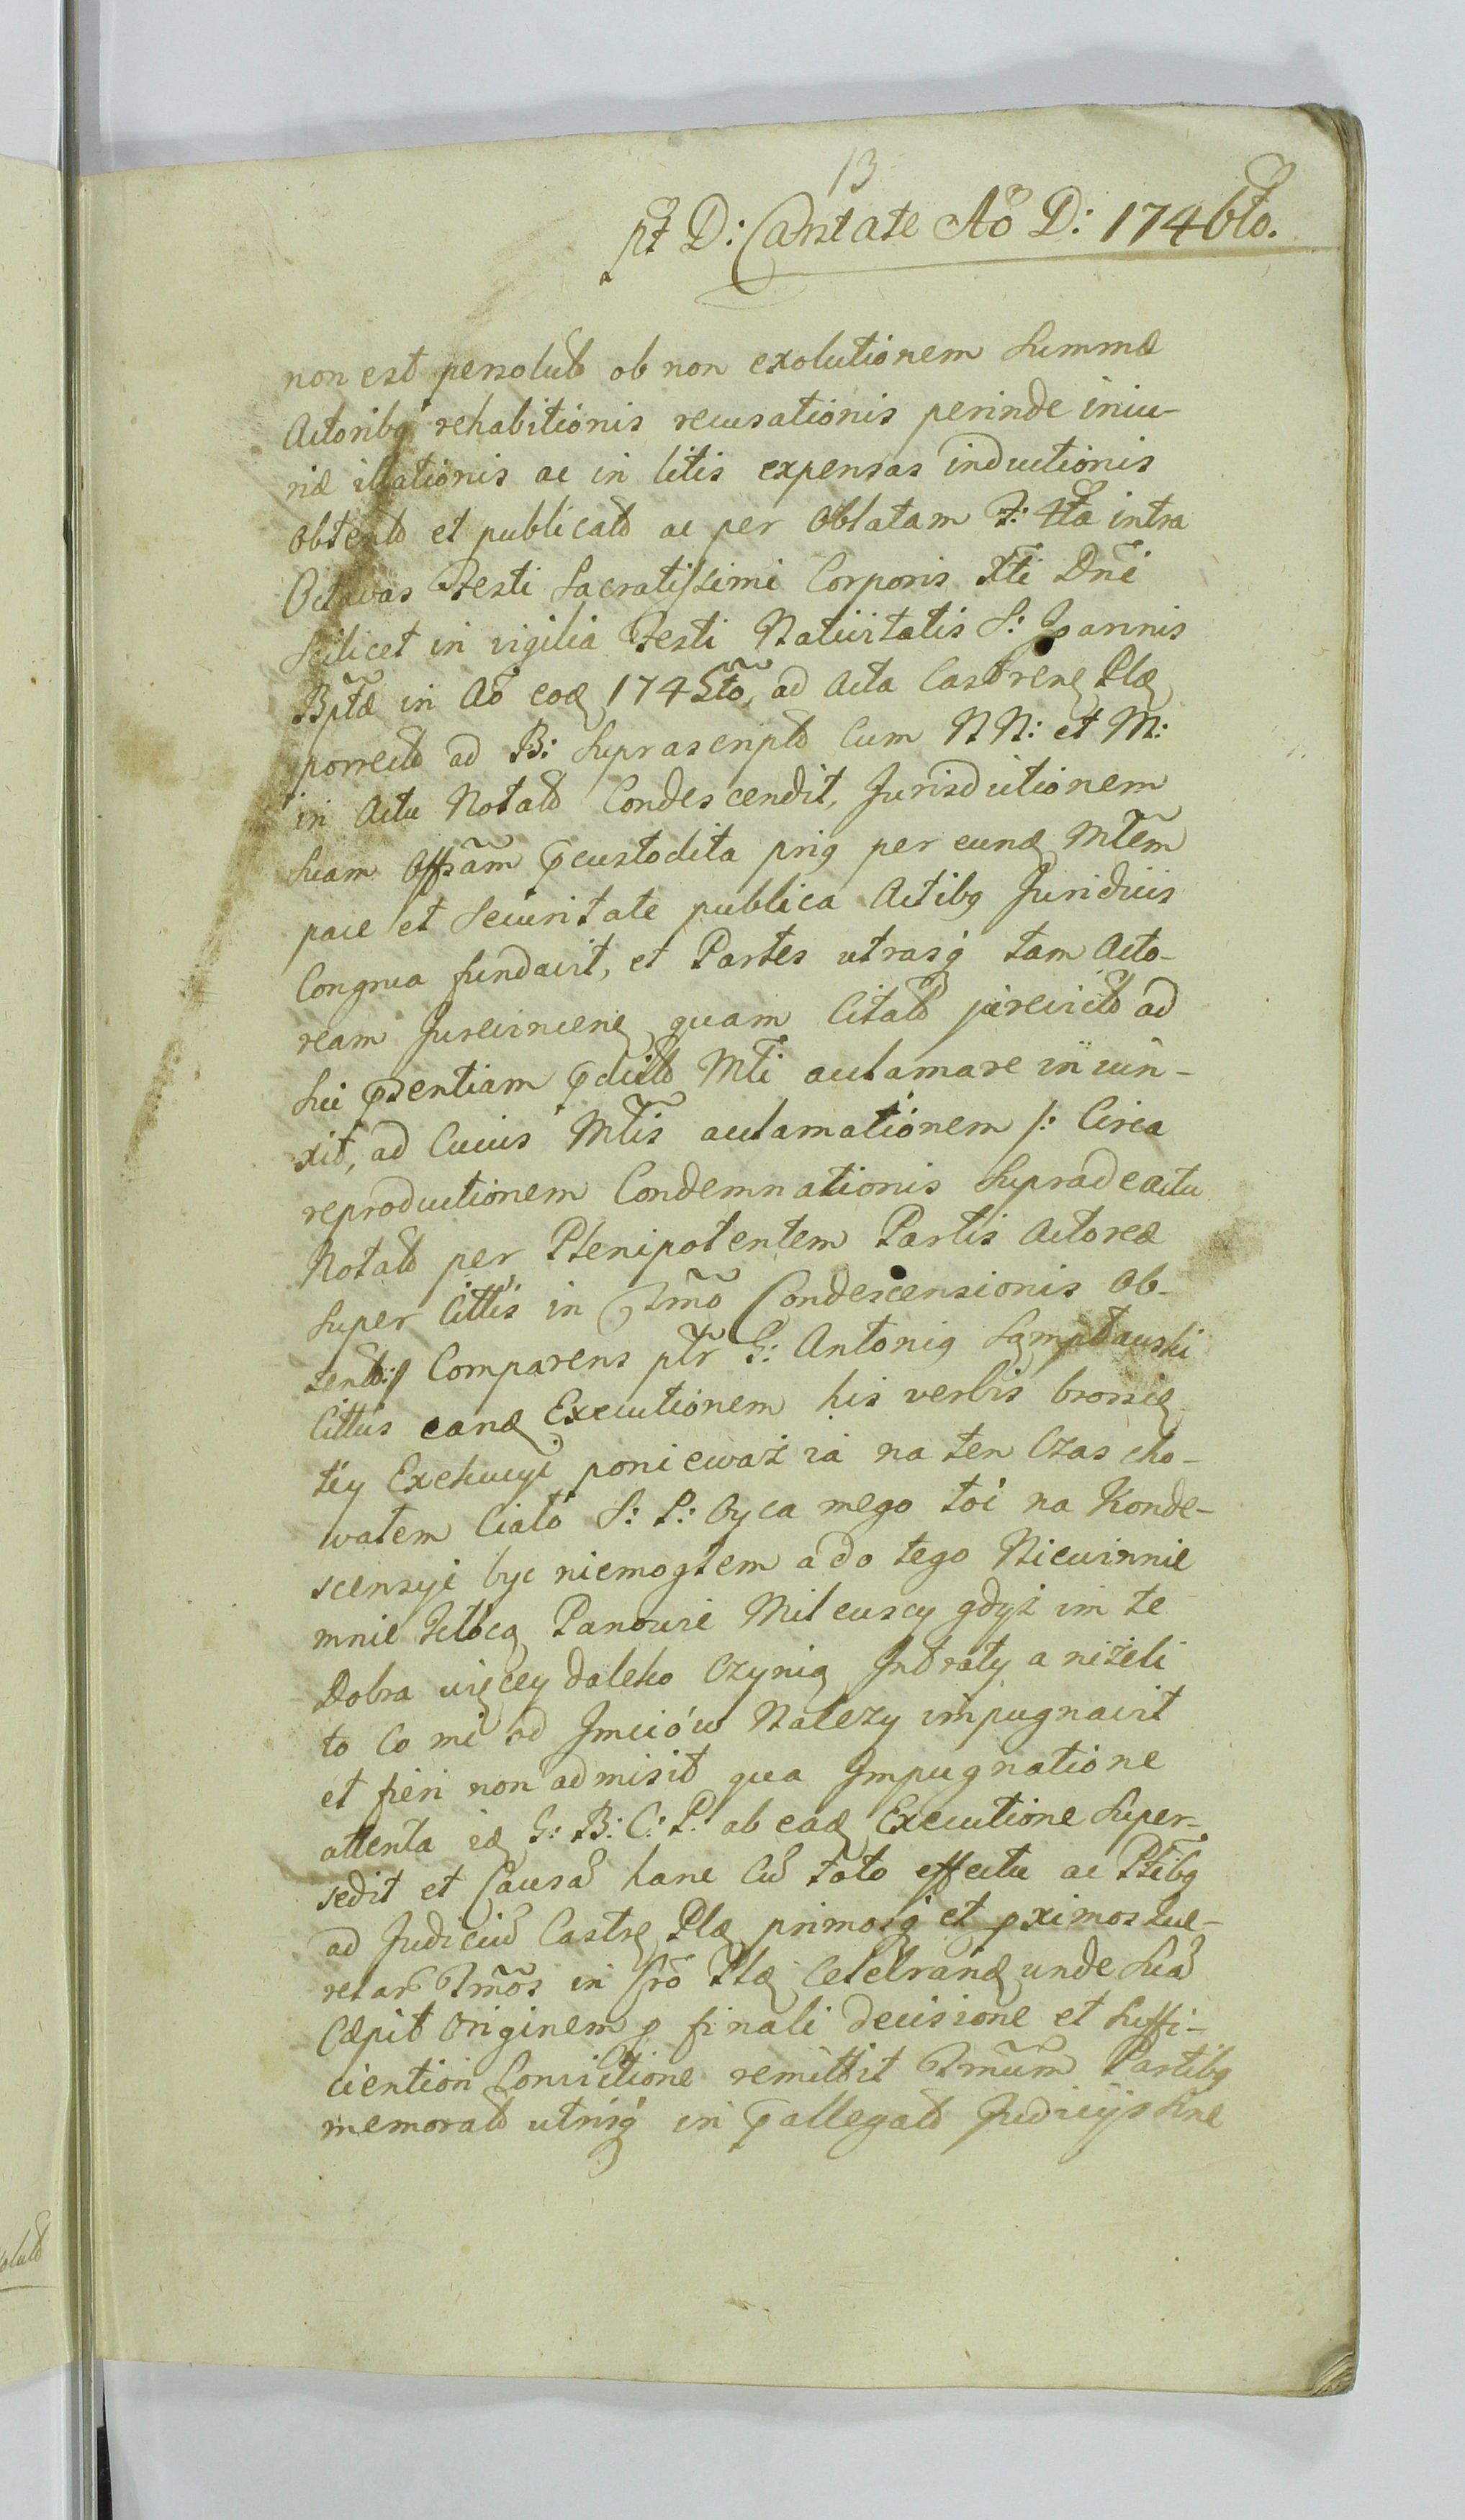 13
pt D: Cantate Aõ D: 1746to.
non est persolut ob non exolutionem Summæ
Actoribq rehabitionis recusationis perinde iniu-
riæ illationis ac in litis expensas inductionis
obtent et publicat ac per Oblatam F: 4ta intra
Octavas Festi Sacratissimi Corporis Xti Dni
Scilicet in vigilia Festi Nativitatis S: Joannis
Bptæ in Aõ eod 1745to, ad Acta Castren Pla
porrect ad B: Suprascript Cum NN: et M:
in Actu Notat Condescendit, Jurisdictionem
Suam Offsam pcustodita prig per eund Mtem
pace et Securitate publica Actibq Juridicis
Congrua fundavit, et Partes utrasq tam Acto-
ream Jurevincen quam Citat jurevict ad
Sui psentiam pdict Mti acclamare iniun-
xit, ad Cuius Mtis acclamationem /: Circa
reproductionem Condemnationis Supra de actu
Notat per Plenipotentem Partis Actoreæ
Super Cittis in Tmõ Condescensionis Ob-
tent:/ Comparens ptr G: Antonig
Cittus eand Executionem his verbis bronię
tey Exekucyi poniewaź ia na ten Czas cho-
wałem Ciało S: P: Oyca mego toi na Konde-
scensyi byc niemogłem a do tego Niewinnie
mnie kłocą Panowie Milewscy gdyż im te
Dobra więcey daleko Czynią Intraty a niżeli
to Co mi od Jmciów Nalezy impugnavit
et fieri non admisit qua Impugnatione
attenta id G: B: C: P: ab ead Executione Super-
sedit et Causa hanc Cu toto effectu ac Ptibq
ad Judiciu Castr Pla primosq et pximos que-
relar Tmos in fro Pla Celebrand unde Sua
Cæpit Originem p finali decisione et Suffi-
cientiori Convictione remittit Tmum Partibq
memorat utrisq in pallegat Judicijs Sine
olut